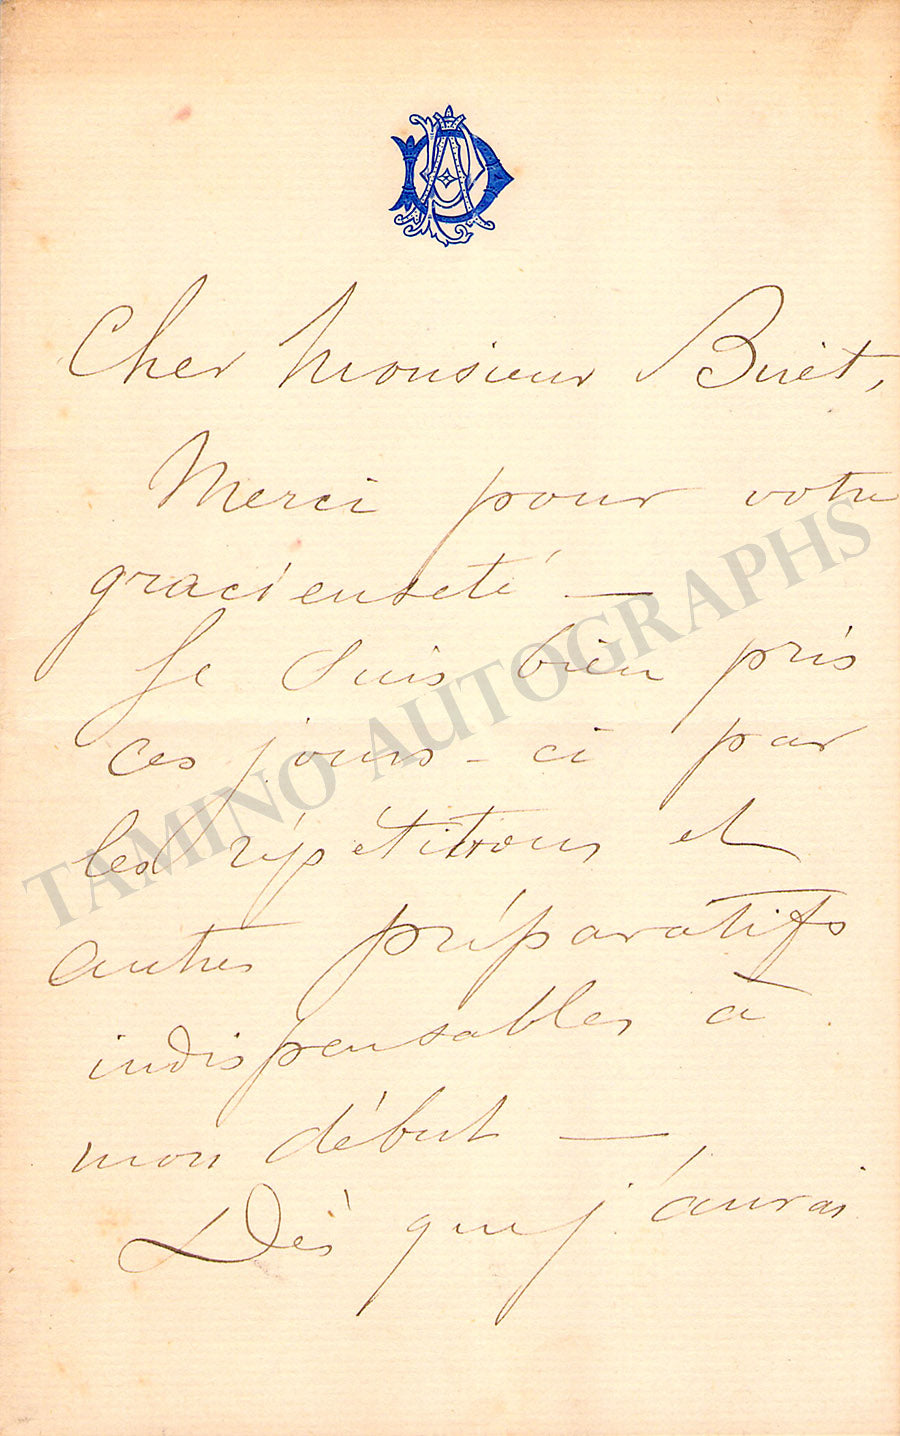 Cher Monsieur Buet,
Merci pour votre
gracieuseté —
Je suis bien pris
ces jours-ci par
les répétitions et
autres préparatifs
indispensables à
mon début —
Dès que j'aurai
TAMINO AUTOGRAPHS